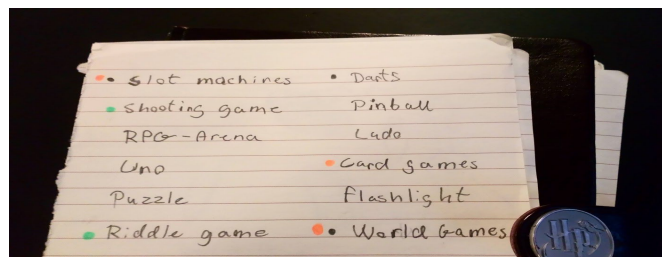 • Slot machines
Shooting game
RPG-Arena
Uno
Puzzle
Riddle game
• Darts
Pinball
Ludo
Card games
flashlight
• World Games
HP